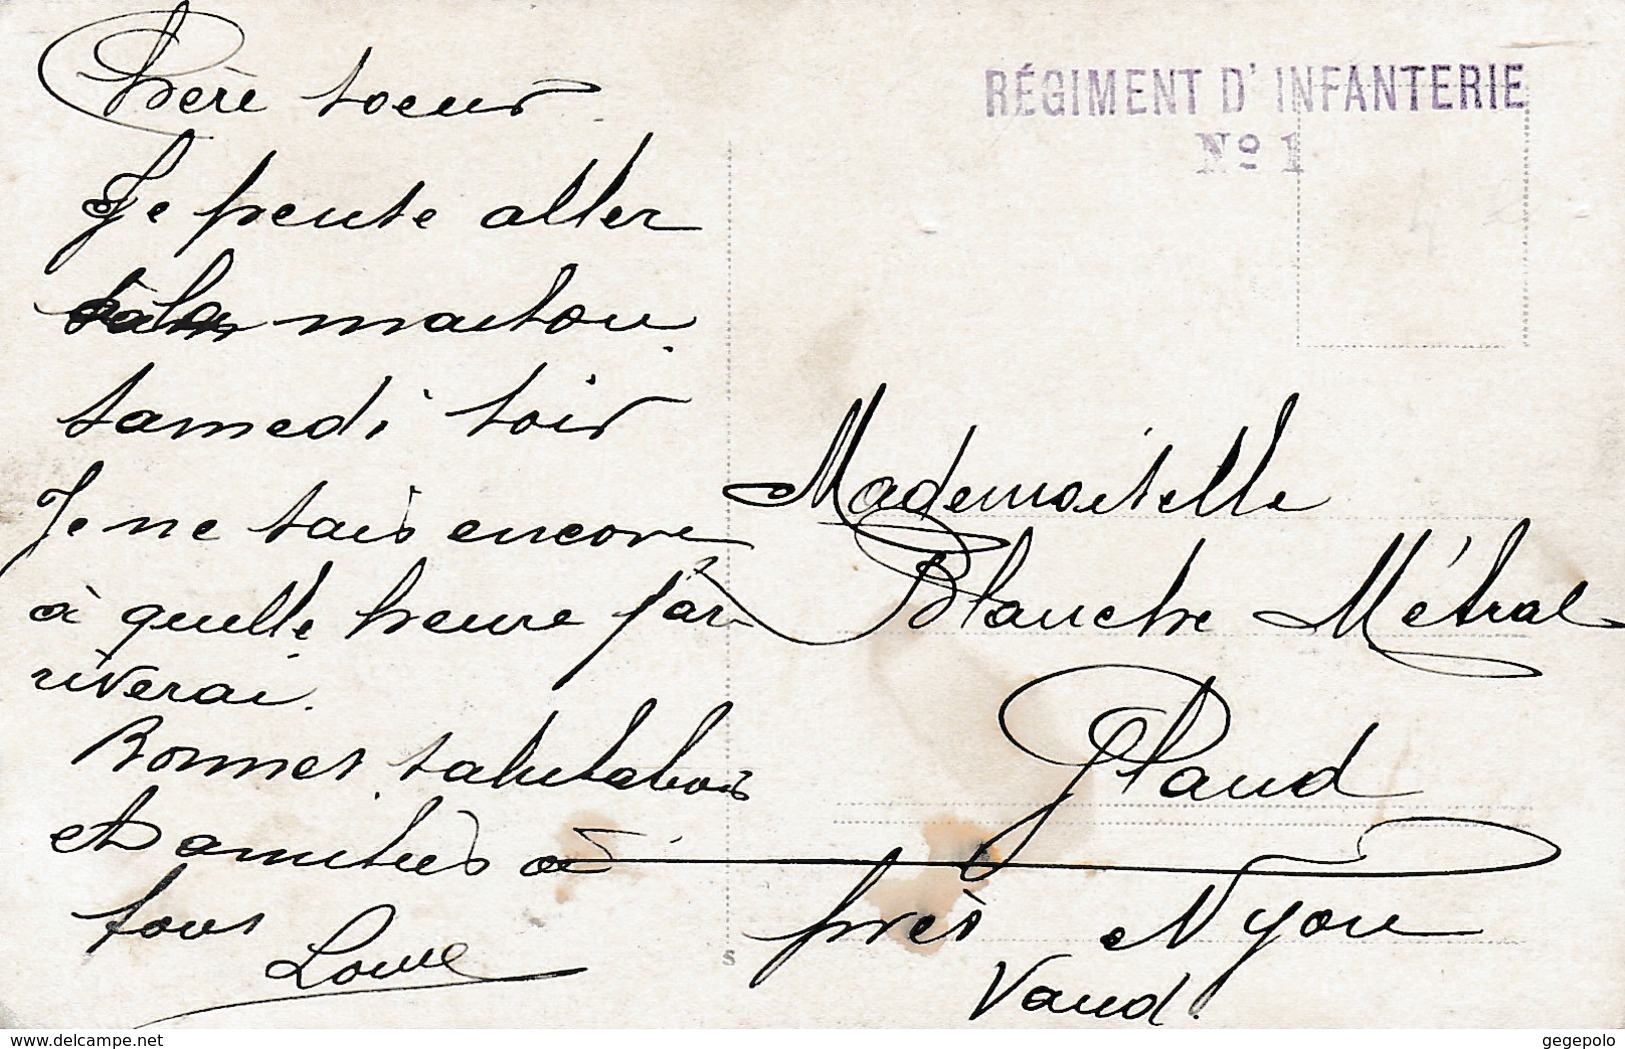 Chère soeur
Je pense aller
à la maison
samedi soir
Je ne sais encore
à quelle heure j'ar-
riverai.
Bonnes salutations
et amitiés à
tous
RÉGIMENT D'INFANTERIE
Nº 1
Mademoiselle
Blanche Métral
Gland
près Nyon
Vaud.
S
www.delcampe.net
gegepolo